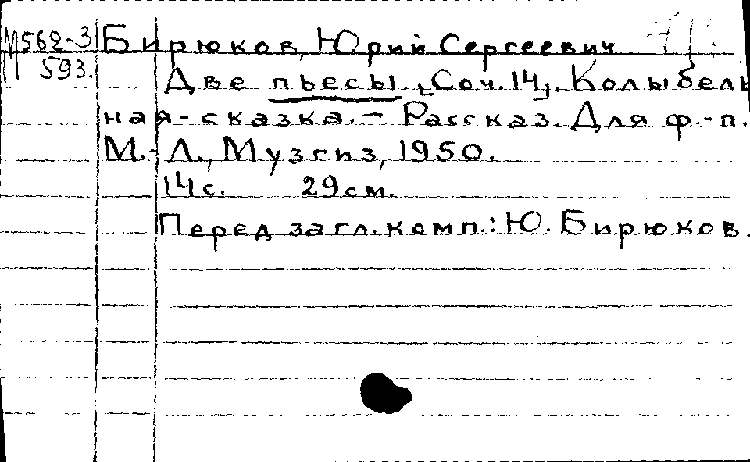 М562-3 Бирюков, Юрий Сергеевич
593. Две пьесы. [Соч. 14]. Колыбель
ная-сказка. - Рассказ. Для ф.-п.
М.-Л., Музгиз, 1950.
14 с. 29 см.
Перед загл. комп.: Ю. Бирюков.